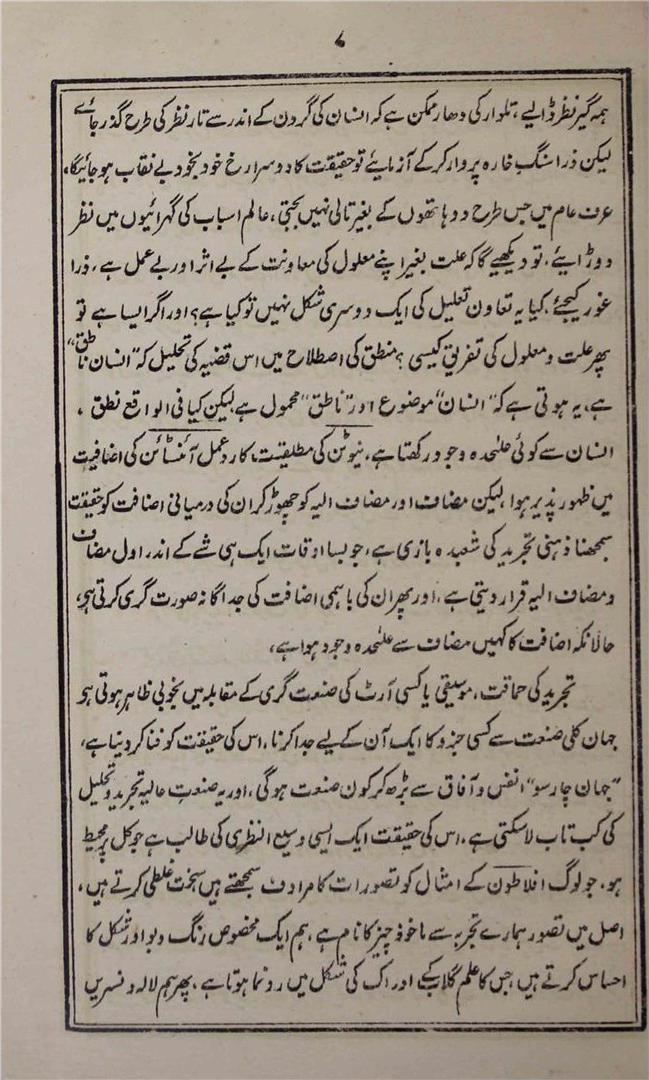 ۷
ہمہ گیر نظر ڈالیے، تلوار کی دھار ممکن ہے کہ انسان کی گردن کے اندر سے تارِ نظر کی طرح گذر جائے
لیکن ذرا سنگ خارہ پر وار کر کے آزمایئے تو حقیقت کا دوسرا رخ خود بخود بے نقاب ہو جائیگا،
عرف عام میں جس طرح دو ہاتھوں کے بغیر تالی نہیں بجتی، عالم اسباب کی گہرائیوں میں نظر
دوڑایئے، تو دیکھیے گا کہ علت بغیر اپنے معلول کی معاونت کے بے اثر اور بے عمل ہے، ذرا
غور کیجئے، کیا یہ تعاون تعلیل کی ایک دوسری شکل نہیں تو کیا ہے؟ اور اگر ایسا ہے تو
پھر علت و معلول کی تفریق کیسی؟ منطق کی اصطلاح میں اس قضیہ کی تحلیل کہ "انسان ناطق"
ہے، یہ ہوتی ہے کہ "انسان" موضوع اور "ناطق" محمول ہے، لیکن کیا فی الواقع نطق،
انسان سے کوئی علٰحدہ وجود رکھتا ہے، نیوٹن کی مطلقیت، کا رد عمل آئنسٹائن کی اضافیت
میں ظہور پذیر ہوا، لیکن مضاف اور مضاف الیہ کو چھوڑ کر ان کی درمیانی اضافت کو حقیقت
سمجھنا ذہنی تجرید کی شعبدہ بازی ہے، جو بسا اوقات ایک ہی شے کے اندر اول مضاف
و مضاف الیہ قرار دیتی ہے، اور پھر ان کی باہمی اضافت کی جداگانہ صورت گری کرتی ہو،
حالانکہ اضافت کا کہیں مضاف سے علٰحدہ وجود ہوا ہے،
تجرید کی حماقت، موسیقی یا کسی آرٹ کی صنعت گری کے مقابلہ میں بخوبی ظاہر ہوتی ہو
جہان کلی صنعت سے کسی جزو کا ایک آن کے لیے جدا کرنا، اس کی حقیقت کو فنا کر دینا ہے،
"جہان چار سو" انفس و آفاق سے بڑھ کر کون صنعت ہوگی، اور یہ صنعتِ عالیہ تجرید و تحلیل
کی کب تاب لا سکتی ہے، اس کی حقیقت ایک ایسی وسیع النظری کی طالب ہے جو کل پر محیط
ہو، جو لوگ افلاطون کے امثال کو تصورات کا مرادف سمجھتے ہیں سخت غلطی کرتے ہیں،
اصل میں تصور ہمارے تجربہ سے ماخوذ چیز کا نام ہے، ہم ایک مخصوص رنگ و بو اور شکل کا
احساس کرتے ہیں، جس کا علم گلاب کے ادراک کی شکل میں رونما ہوتا ہے، پھر ہم لالہ و نسرین